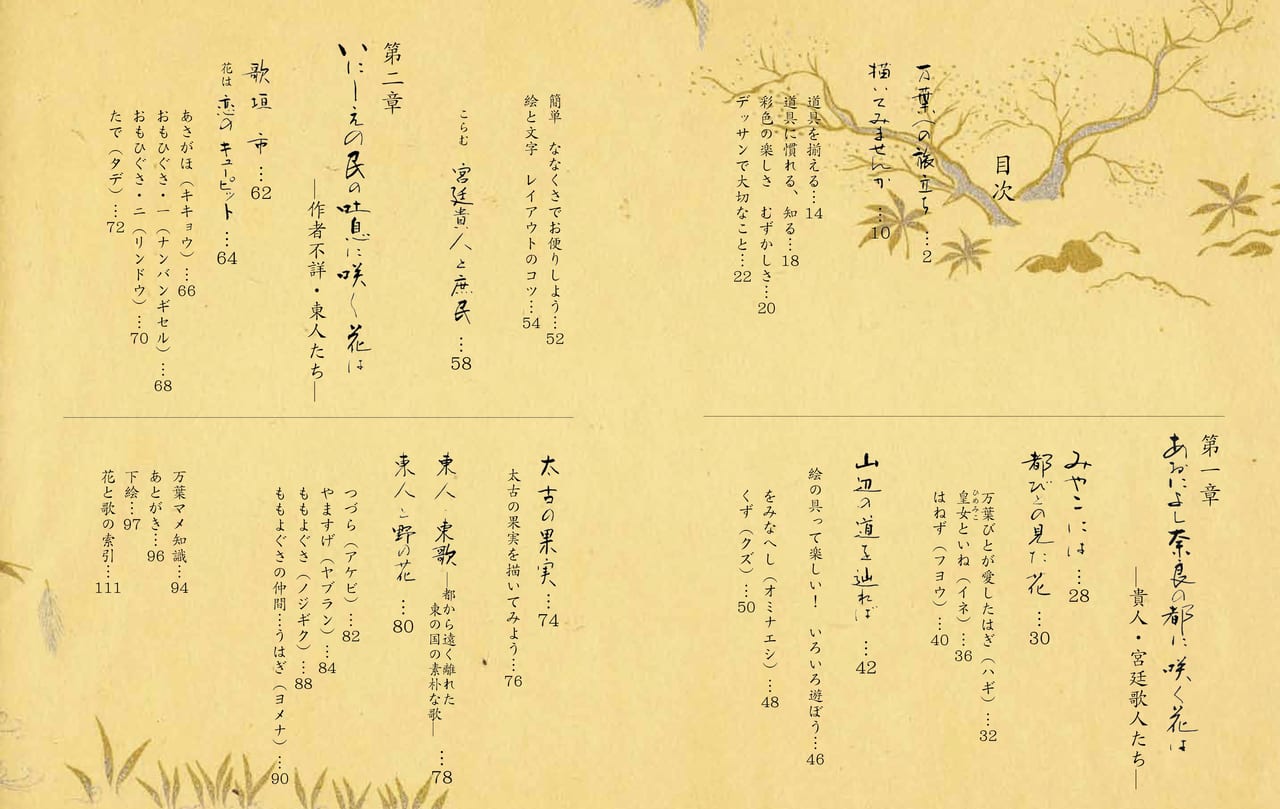 目次
万葉への旅立ち…2
描いてみませんか…10
道具を揃える…14
道具に慣れる、知る…18
彩色の楽しさ　むずかしさ…20
デッサンで大切なこと…22
第一章
あおによし奈良の都に咲く花は
―貴人・宮廷歌人たち―
みやこには…28
都びとの見た花…30
万葉びとが愛したはぎ（ハギ）…32
皇女といね（イネ）…36
ひめみこ
はねず（フヨウ）…40
山辺の道を辿れば…42
絵の具って楽しい！　いろいろ遊ぼう…46
をみなへし（オミナエシ）…48
くず（クズ）…50
簡単　ななくさでお便りしよう…52
絵と文字　レイアウトのコツ…54
こらむ　宮廷貴人と庶民…58
第二章
いにしえの民の吐息に咲く花は
―作者不詳・東人たち―
歌垣　市…62
花は恋のキューピット…64
あさがほ（キキョウ）…66
おもひぐさ・一（ナンバンギセル）…68
おもひぐさ・二（リンドウ）…70
たで（タデ）…72
太古の果実…74
太古の果実を描いてみよう…76
東人・東歌―都から遠く離れた
東の国の素朴な歌―…78
東人と野の花…80
つづら（アケビ）…82
やますげ（ヤブラン）…84
ももよぐさ（ノジギク）…88
ももよぐさの仲間…うはぎ（ヨメナ）…90
万葉マメ知識…94
あとがき…96
下絵…97
花と歌の索引…111